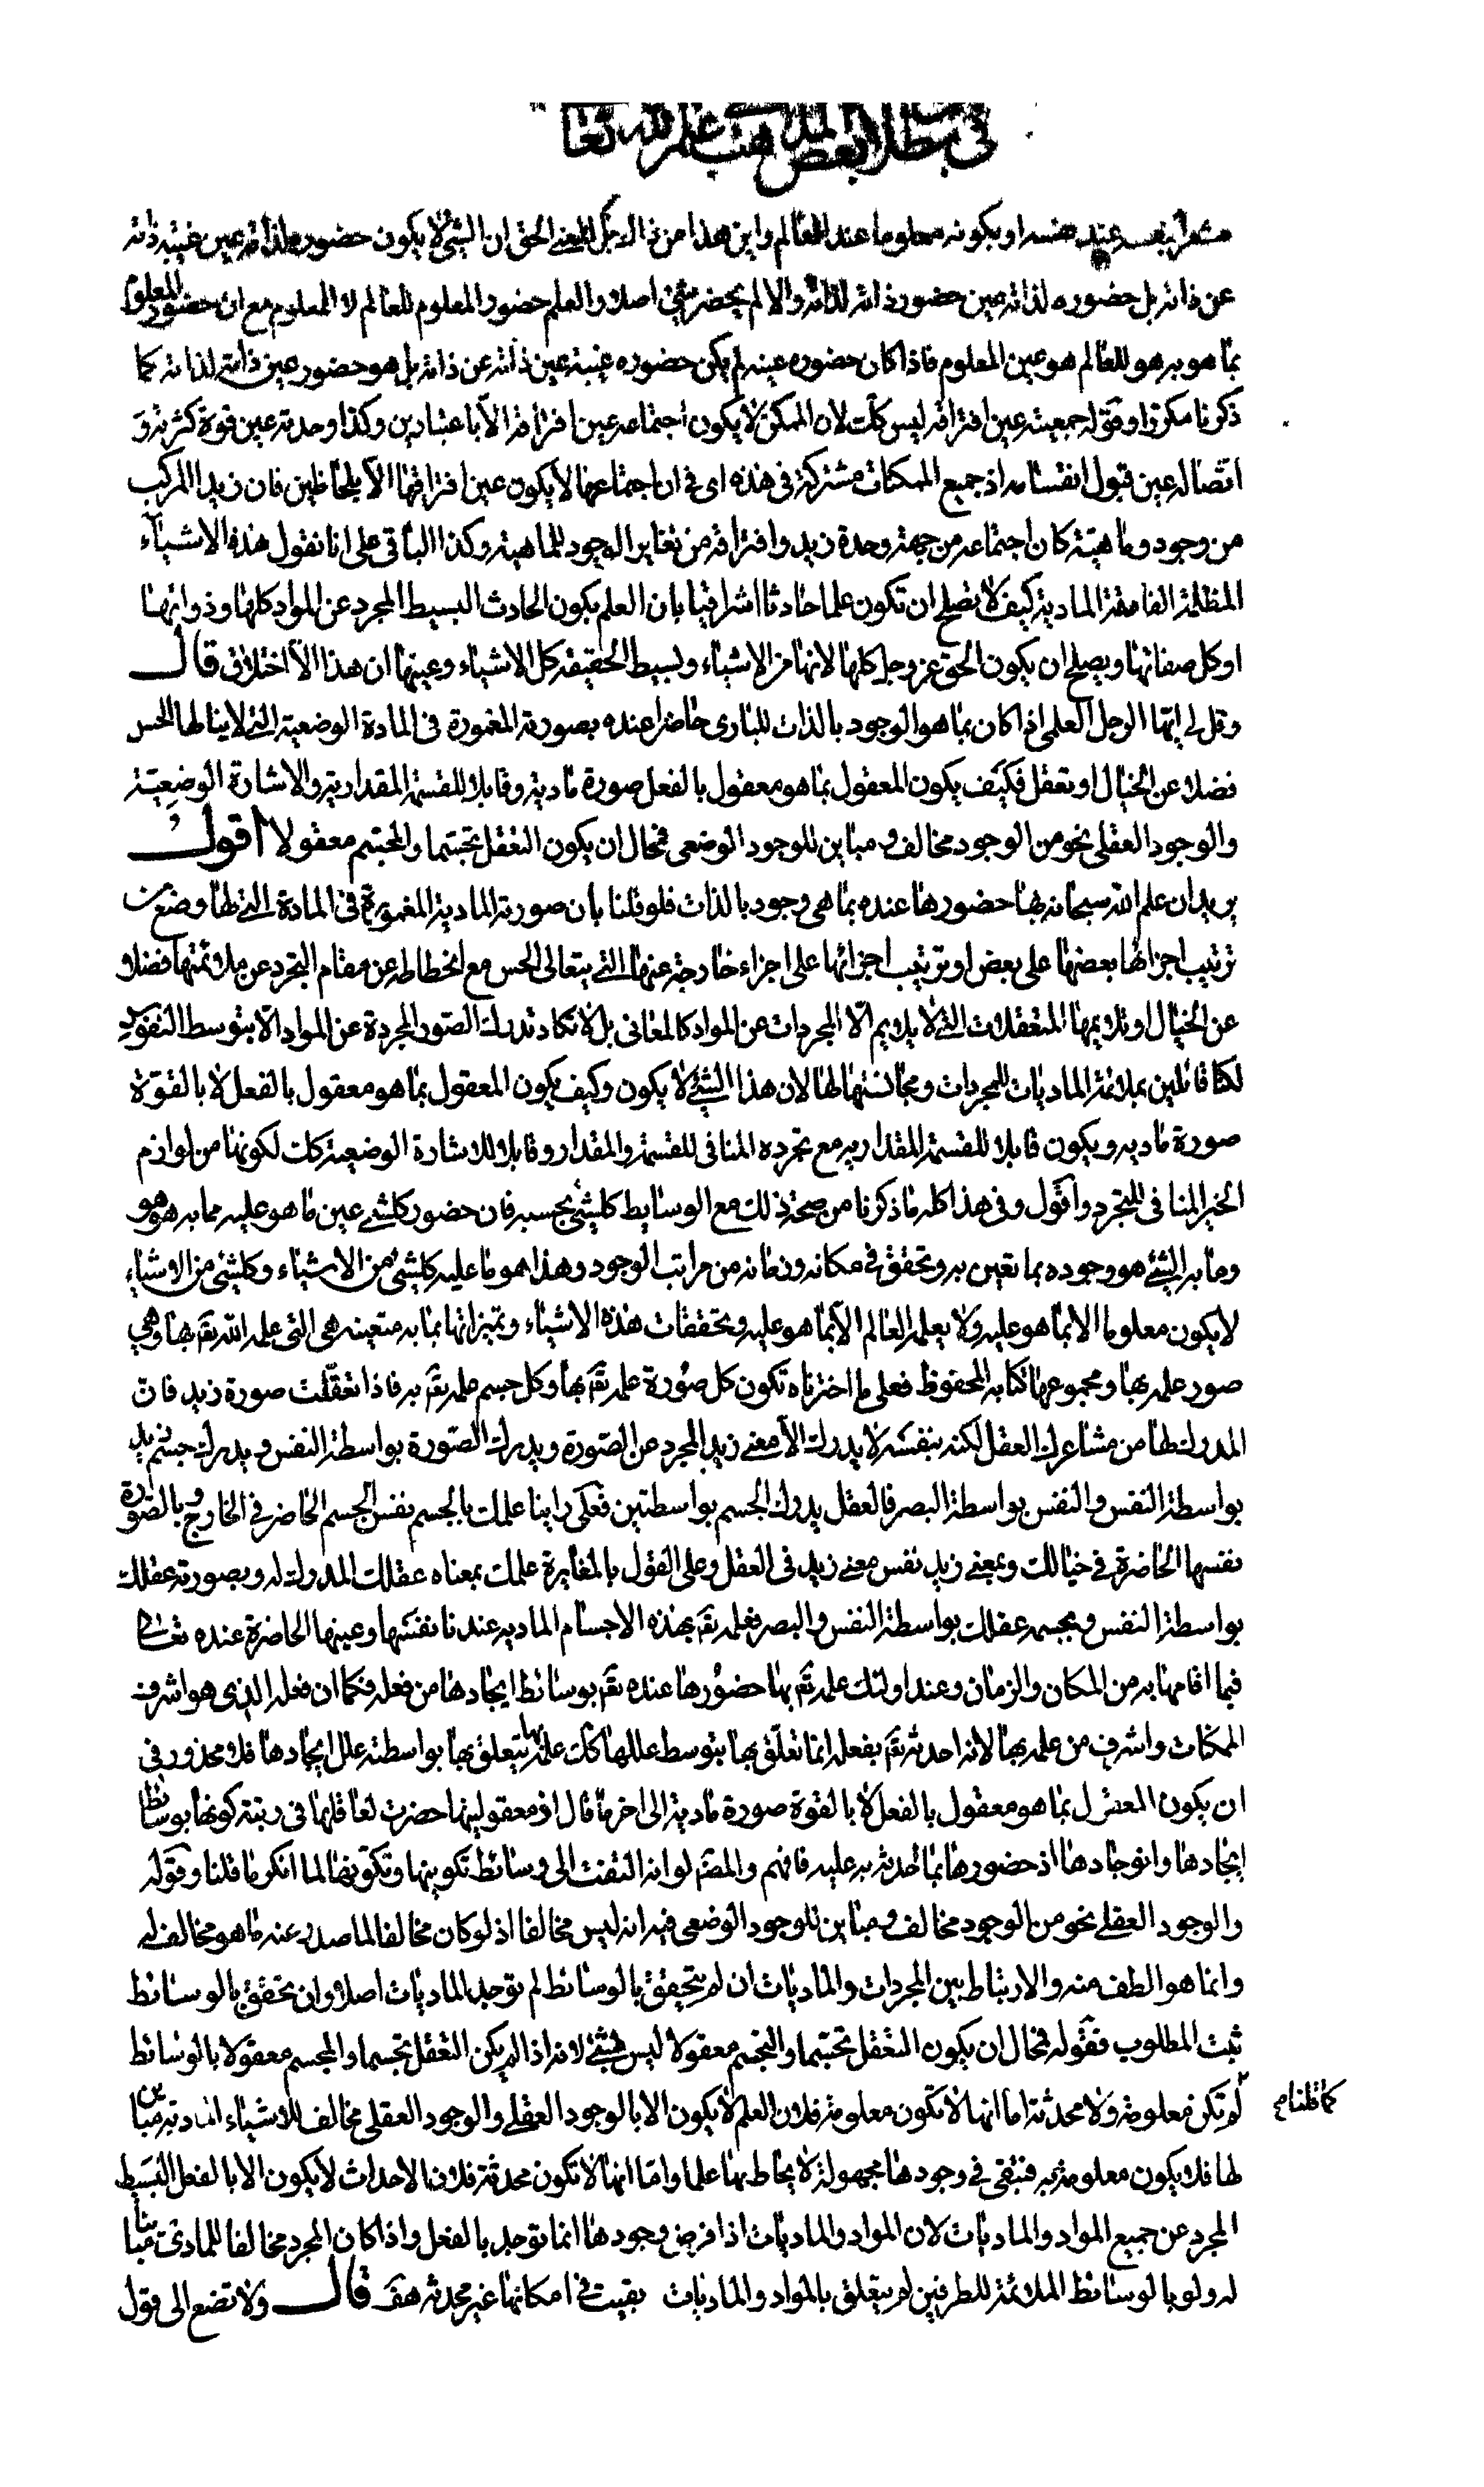 في بطلان بعض المذاهب علم الله تعا
عند نفسه او بكونه معلوما عند العالم واين هذا من ذاك بل المعنى الحق ان الشئ لا يكون حضوره لذاته عين غيبة ذاته
عن ذاته بل حضوره لذاته عين حضور ذاته لذاته والا لم يحضر شئ اصلا والعلم حضور المعلوم للعالم لا المعلوم مع ان حضور المعلوم
بما هو به هو للعالم هو عين المعلوم فاذا كان حضوره عينه لم يكن حضوره غيبة عين ذاته عن ذاته بل هو حضور عين ذاته لذاته كما
ذكرنا مكررا وقوله جمعيته عين افتراقه ليس كك لان الممكن لا يكون اجتماعه عين افتراقه الا باعتبارين وكذا وحدته عين قوة كثرته و
اتصاله عين قبول انفسامه اذ جميع الممكنات مشتركة في هذه اى في ان اجتماعها لا يكون عين افتراقها الا بلحاظين فان زيدا المركب
من وجود وماهية كان اجتماعه من جهة وحدة زيد وافتراقه من تغاير الوجود للماهية وكذا الباقي على انا نقول هذه الاشياء
المظلمة الغاسقة المادية كيف لا يصلح ان تكون علما حادثا اشراقيا بان العلم يكون الحادث البسيط المجرد عن المواد كلها وذواتها
او كل صفاتها ويصلح ان يكون الحق عز وجل كلها لانها من الاشياء وبسيط الحقيقة كل الاشياء وعينها ان هذا الا اختلاق قال
وقل لى ايها الرجل العلمى اذا كان بما هو الوجود بالذات للبارى حاضرا عنده بصورته المغمورة في المادة الوضعية التى لا ينالها الحس
فضلا عن الخيال او تعقل فكيف يكون المعقول بما هو معقول بالفعل صورة مادية وقابلا للقسمة المقدارية والاشارة الوضعية
والوجود العقلى نحو من الوجود مخالف ومباين للوجود الوضعى فمحال ان يكون التعقل تجسما والمجسم معقولا اقول
يريد ان علم الله سبحانه بها حضورها عنده بما هى وجود بالذات فلو قلنا بان صورته المادية المغمورة في المادة التى لها وضع من
ترتيب اجزائها بعضها على بعض او ترتيب اجزائها على اجزاء خارجة عنها التى يتعالى الحس مع انحطاطه عن مقام التجرد عن ملائمتها فضلا
عن الخيال او تلايمها المتعقلات التى لا يلايم الا المجردات عن المواد كالمعانى بل لا تكاد تدرك الصور المجردة عن المواد الا بتوسط النفوس
لكنا قائلين بملائمة الماديات للمجردات ومجانستها لها لان هذا الشئ لا يكون وكيف يكون المعقول بما هو معقول بالفعل لا بالقوة
صورة مادية ويكون قابلا للقسمة المقدارية مع تجرده المنافى للقسمة والمقدار وقابلا للاشارة الوضعية كك لكونها من لوازم
الخير المنافى للتجرد واقول وفي هذا كله ما ذكرنا من صحة ذلك مع الوسايط كل شئ بحسبه فان حضور كل شئ عين ما هو عليه مما به هو هو
وما به الشئ هو وجوده بما تعين به وتحقق في مكانه وزمانه من مراتب الوجود وهذا هو ما عليه كل شئ من الاشياء وكل شئ من الاشياء
لا يكون معلوما الا بما هو عليه ولا يعلمه العالم الا بما هو عليه وتحققات هذه الاشياء وتميزاتها بما به متعينه هى التى علم الله تع بها وهى
صور علمه بها ومجموعها كتابه المحفوظ فعلى ما اخترناه تكون كل صورة علمه تع بها وكل جسم علمه تع به فاذا تعقلت صورة زيد فان
المدرك لها من مشاعرك العقل لكنه بنفسه لا يدرك الا معنى زيد المجرد عن الصورة ويدرك الصورة بواسطة النفس ويدرك جسم زيد
بواسطة النفس والنفس بواسطة البصر فالعقل يدرك الجسم بواسطتين فعلى راينا علمك بالجسم نفس الجسم الحاضر في الخارج وبالصورة
نفسها الحاضرة في خيالك وبمعنى زيد نفس معنى زيد في العقل وعلى القول بالمغايرة علمك بمعناه عقلك المدرك له وبصورته عقلك
بواسطة النفس وبجسمه عقلك بواسطة النفس والبصر فعلمه تع بهذه الاجسام المادية عندنا نفسها وعينها الحاضرة عنده تعالى
فيما اقامها به من المكان والزمان وعند اولئك علمه تع بها حضورها عنده تع بوسائط ايجادها من فعله فكما ان فعله الذى هو اشرف
الممكنات واشرف من علمه بها لانه احدثه تع بفعله انما تعلق بها بتوسط عللها كك علمه بها يتعلق بها بواسطة علل ايجادها فلا محذور في
ان يكون المعقول بما هو معقول بالفعل لا بالقوة صورة مادية الى اخر ما قال اذ معقوليتها حضرت لعاقلها في رتبة كونها بوسائط
ايجادها وانوجادها اذ حضورها بما احدثه به عليه فافهم والمص لو انه التفت الى وسائط تكوينها وتكونها لما انكر ما قلنا وقوله
والوجود العقلى نحو من الوجود مخالف ومباين للوجود الوضعى فيه انه ليس مخالفا اذ لو كان مخالفا لما صدر عنه ما هو مخالف له
وانما هو الطف منه والارتباط بين المجردات والماديات ان لم يتحقق بالوسائط لم توجد الماديات اصلا وان تحقق بالوسائط
ثبت المطلوب فقوله فمحال ان يكون التعقل تجسما والتجسم معقولا ليس بشئ لانه اذا لم يكن التعقل تجسما والمجسم معقولا بالوسائط
كما قلنا صح
لم تكن معلومة ولا محدثة اما انها لا تكون معلومة فلان العلم لا يكون الا بالوجود العقلى والوجود العقلى مخالف للاشياء المادية مباين
لها فلا يكون معلومة به فتبقى في وجودها مجهولة لا يحاط بها علما واما انها لا تكون محدثة فلان الاحداث لا يكون الا بالفعل البسيط
المجرد عن جميع المواد والماديات لان المواد والماديات اذا فرض وجودها انما توجد بالفعل واذا كان المجرد مخالفا للمادى مباينا
له ولو بالوسائط الملائمة للطرفين لم يتعلق بالمواد والماديات بقيت في امكانها غير محدثة هف قال ولا تضع الى قول